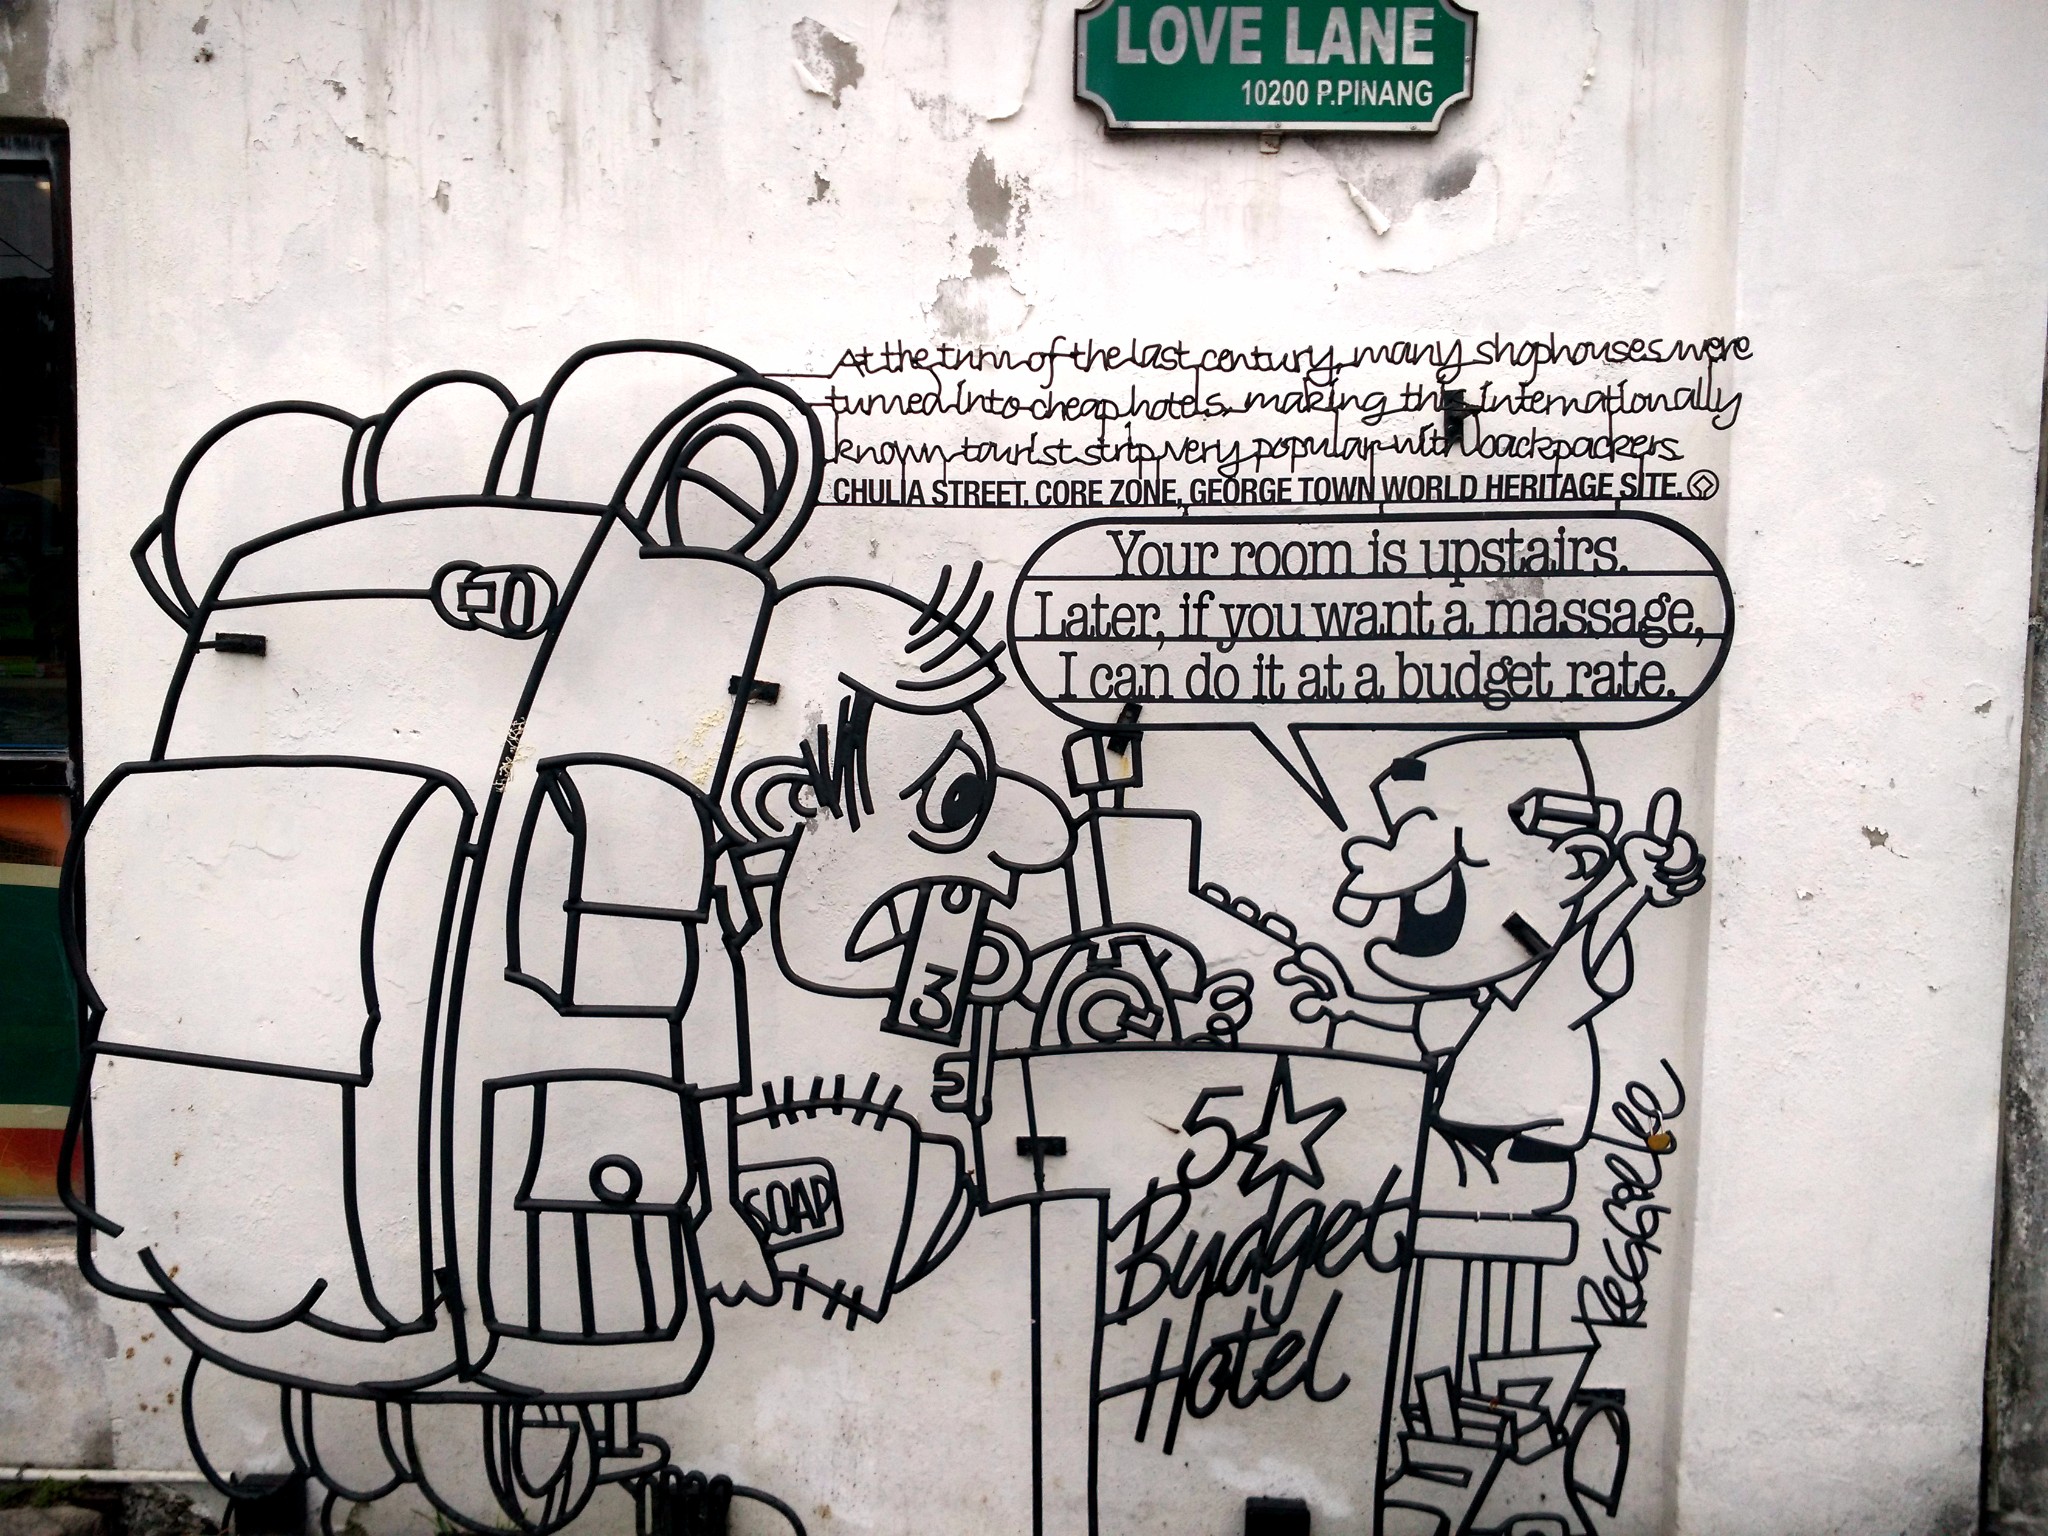 LOVE LANE
10200 P.PINANG
At the turn of the last century, many shophouses were
turned into cheap hotels, making this internationally
known tourist strip very popular with backpackers.
CHULIA STREET, CORE ZONE, GEORGE TOWN WORLD HERITAGE SITE.
Your room is upstairs.
Later, if you want a massage,
I can do it at a budget rate.
3
SOAP
5
Budget
Hotel
ReGGie Lee